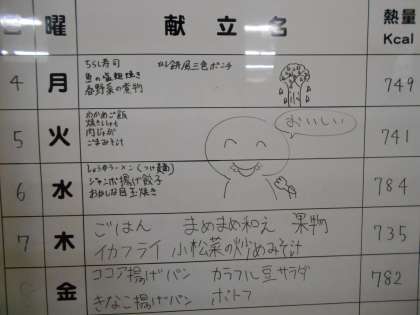 曜 献立名 熱量 Kcal
4 月 ちらし寿司 ひし餅風三色ポンチ 749
魚の塩麹焼き
春野菜の煮物
おいしい
5 火 わかめご飯 741
焼きししゃも
肉じゃが
ごまみそ汁
6 水 しょうゆラーメン(つけ麺) 784
ジャンボ揚げ餃子
目玉焼き
7 木 ごはん まめまめ和え 果物 735
イカフライ 小松菜の炒めみそ汁
金 ココア揚げパン カラフル豆サラダ 782
きなこ揚げパン ポトフ